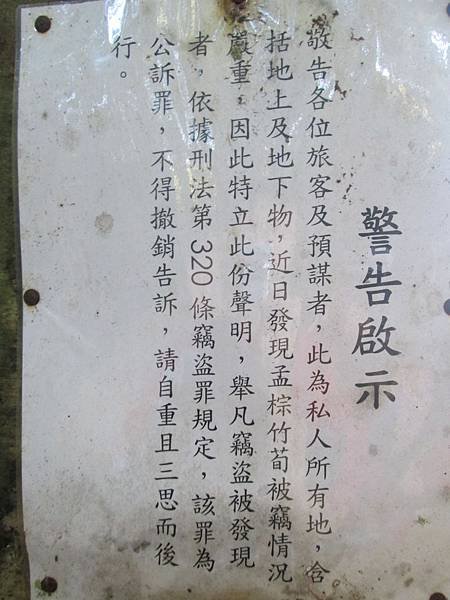 警告啟示
敬告各位旅客及預謀者，此為私人所有地，含
括地上及地下物，近日發現孟棕竹荀被竊情況
嚴重，因此特立此份聲明，舉凡竊盜被發現
者，依據刑法第320條竊盜罪規定，該罪為
公訴罪，不得撤銷告訴，請自重且三思而後
行。